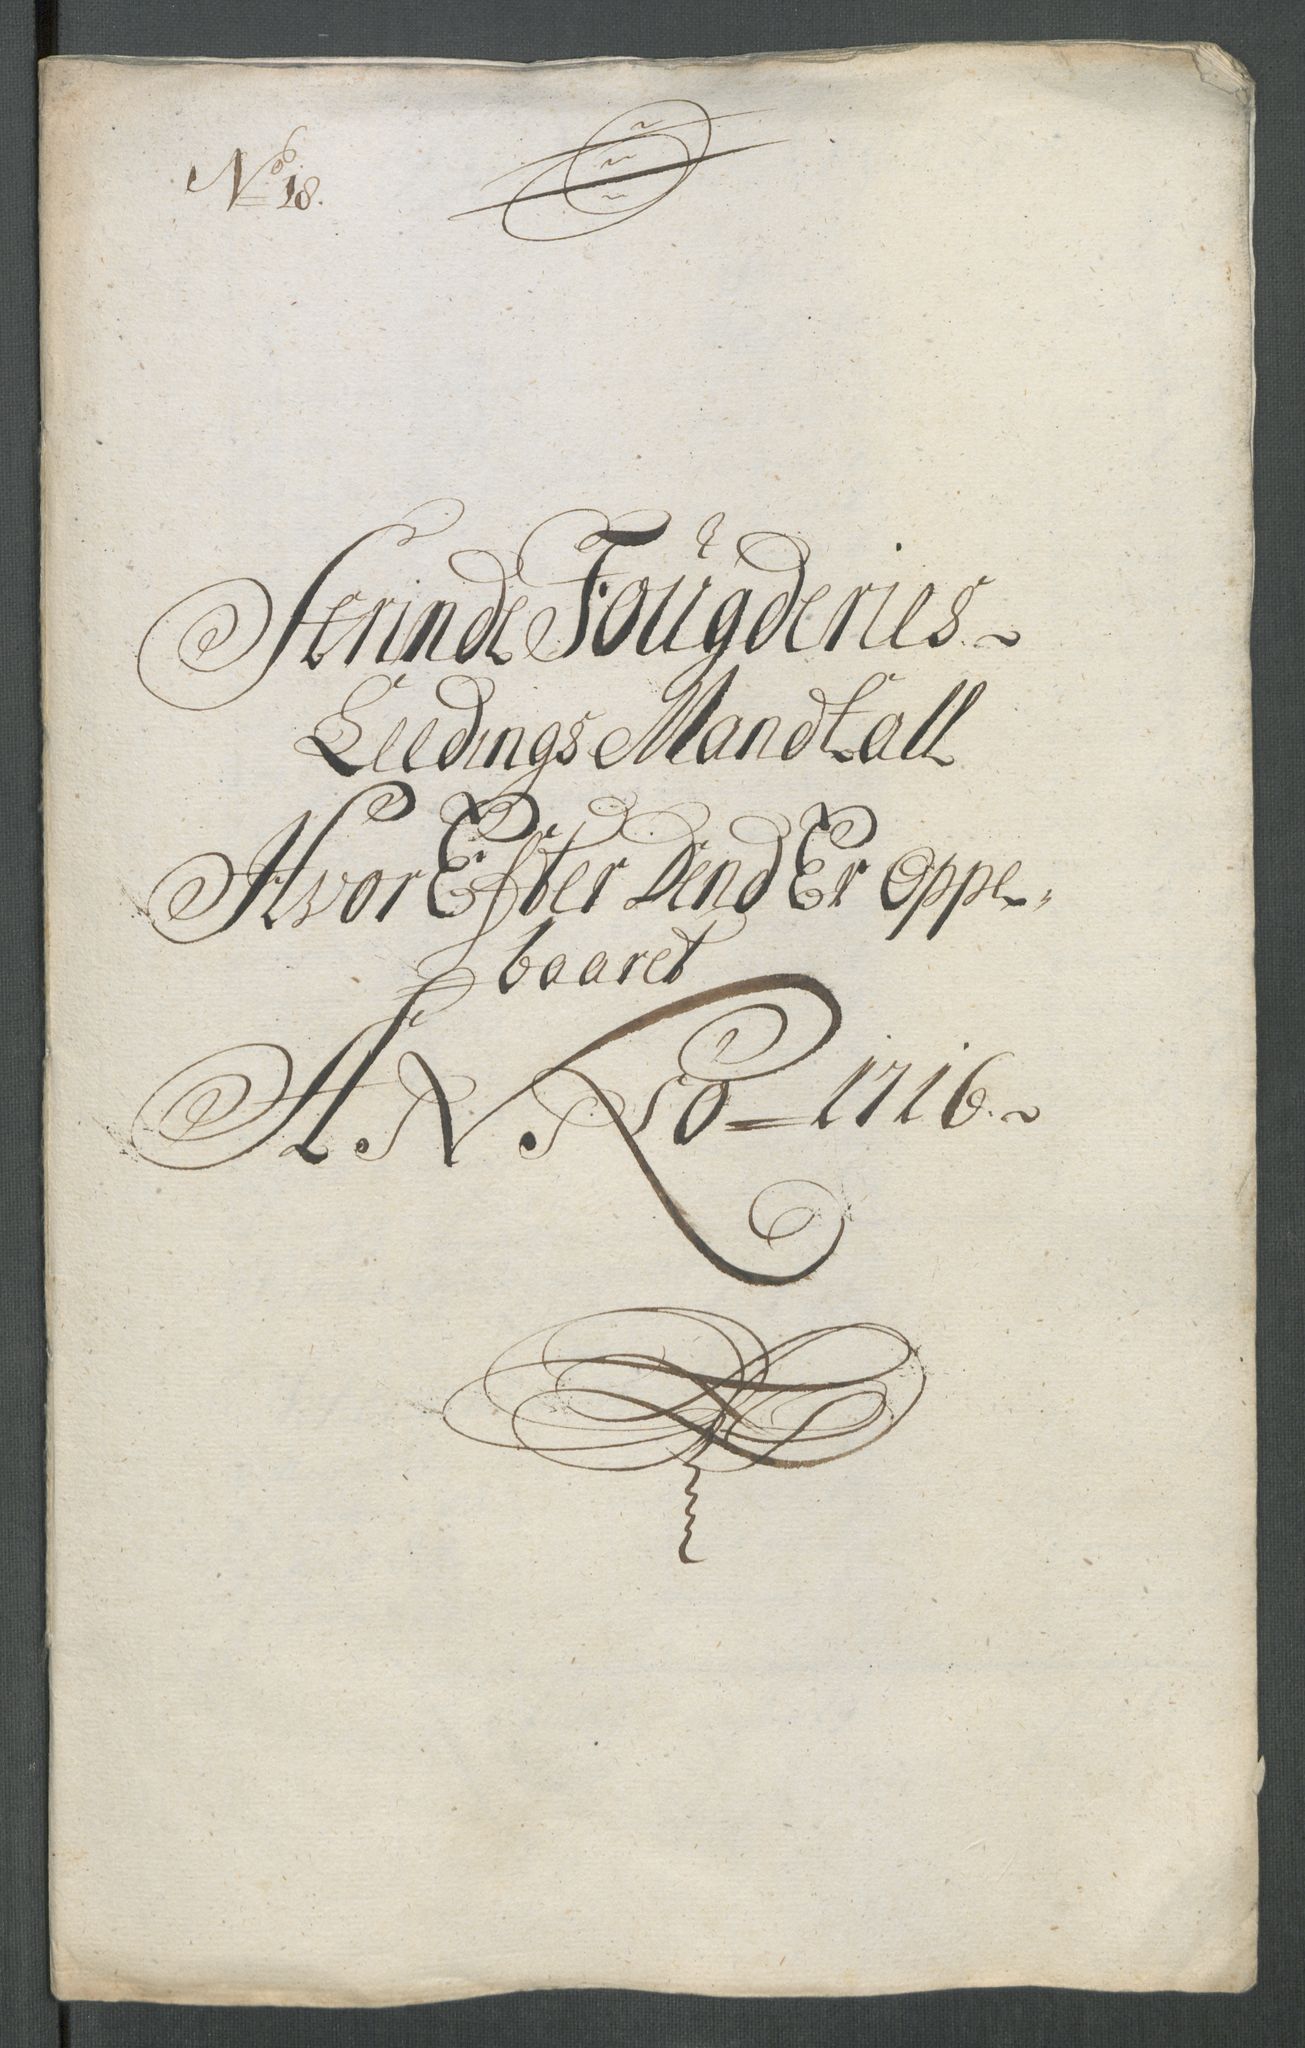 No 18.
Strinde Fougderies
Leedings Mandtall
Hvor Efter Dend Er Oppe,
baaret
ANNO = 1716.